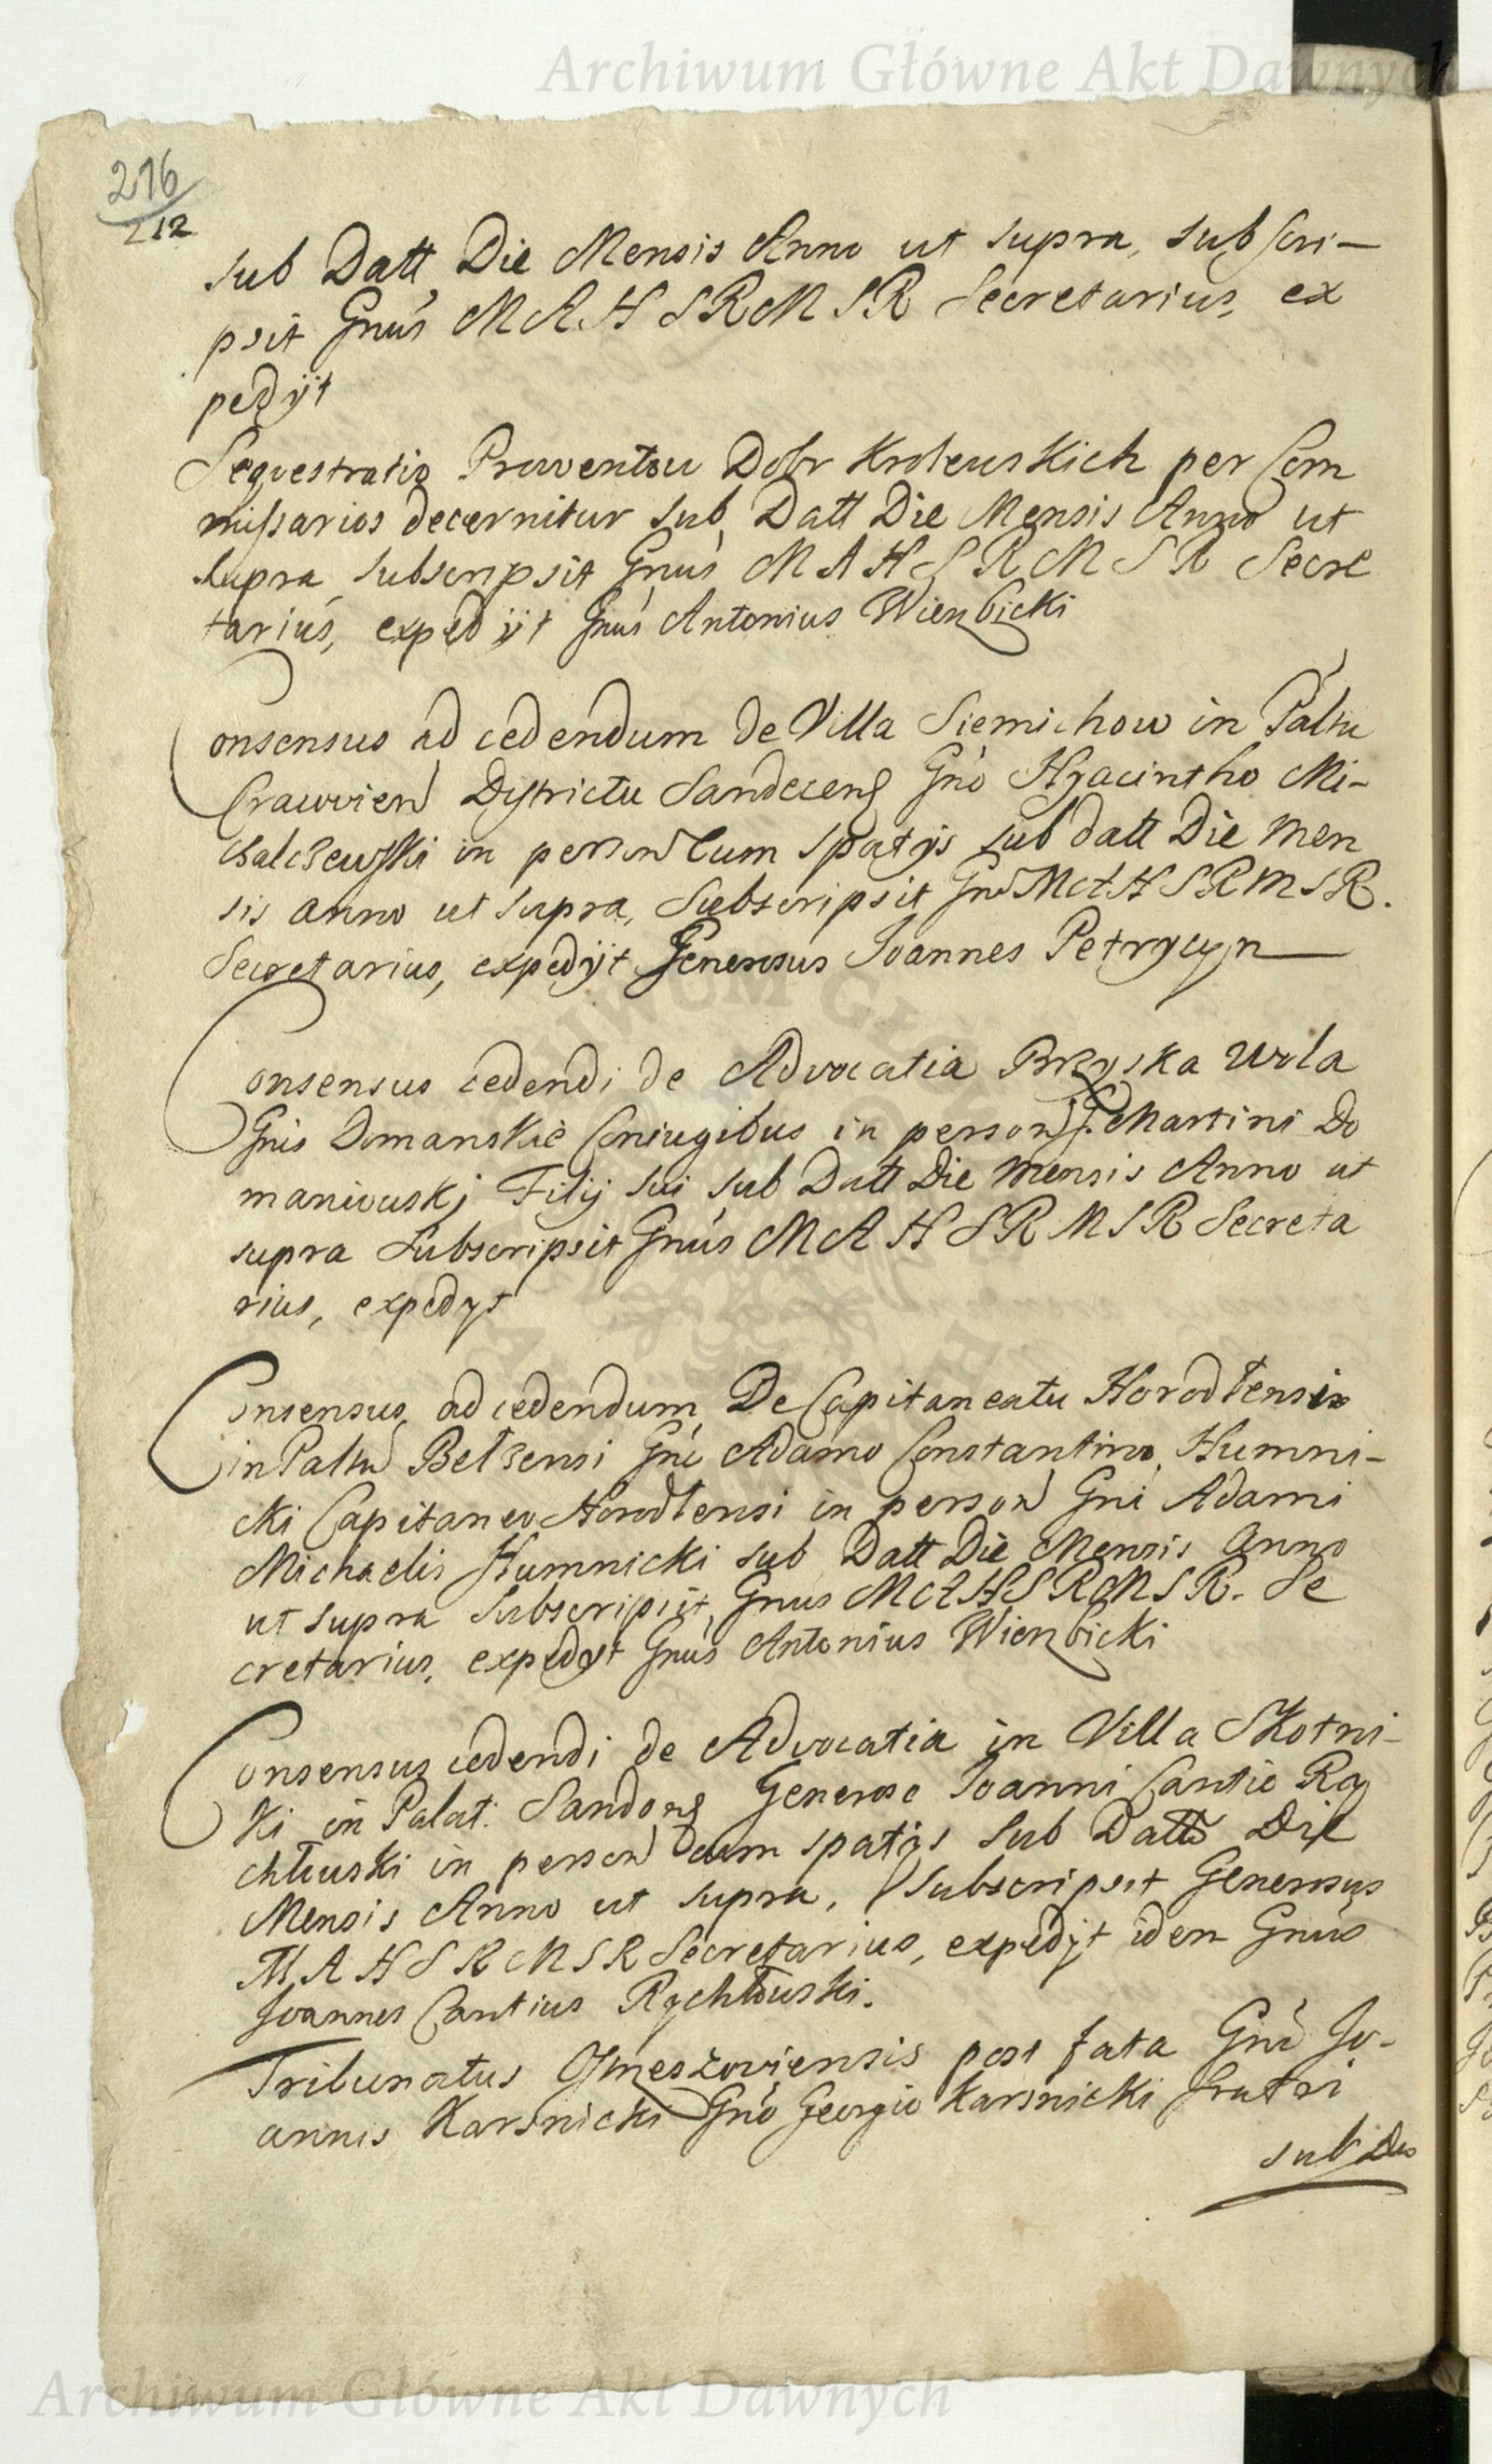 Archiwum Główne Akt Dawnych
216
212
sub Datt Die Mensis Anno ut supra, subscri-
psit Gnus M A H S R M S R Secretarius, ex
pedÿt
Sequestratio Prowentow Dobr Krolewskich per Com
missarios decernitur sub Datt Die Mensis Anno ut
supra subscripsit Gnus M A H S R M S R Secre
tarius, expedÿt Gnus Antonius Wierzbicki
Consensus ad cedendum de Villa Siemichow in Paltu
Cracovien Districtu Sandecens Gno Hyacintho Mi-
chalczewski in person Cum spatÿs sub datt Die Men
sis anno ut supra, Subscripsit Gnus M A H S R M S R.
Secretarius, expedÿt Generosus Joannes Petrycyn
Consensus cedendi de Advocatia Brzyska Wola
Gnis Domanskie Coniugibus in person G. Martini Do
maniowski Filÿ sui sub Datt Die Mensis Anno ut
supra Subscripsit Gnus M A H S R M S R Secreta
rius, expedyt
Consensus ad cedendum De Capitaneatu Horodłensi
in Paltu Belzensi Gni Adamo Constantino, Humni-
cki Capitaneo Horodłensi in person Gni Adami
Michaelis Humnicki sub Datt Die Mensis Anno
ut supra Subscripsit, Gnus M A H S R M S R. Se
cretarius, expedyt Gnus Antonius Wierzbicki
Consensus cedendi de Advocatia in Villa Skotni-
ki in Palat: Sandom Generoso Joanni Cantio Ry
chłowski in person cum spatis Sub Datt Die
Mensis Anno ut supra, Subscripsit Generosus
M A H S R M S R Secretarius, expedyt idem Gnus
Joannes Cantius Rychłowski.
Tribunatus post fata Gni Jo-
annis Karsnicki Gno Georgio Karsnicki fratri
sub Da
Archiwum Główne Akt Dawnych